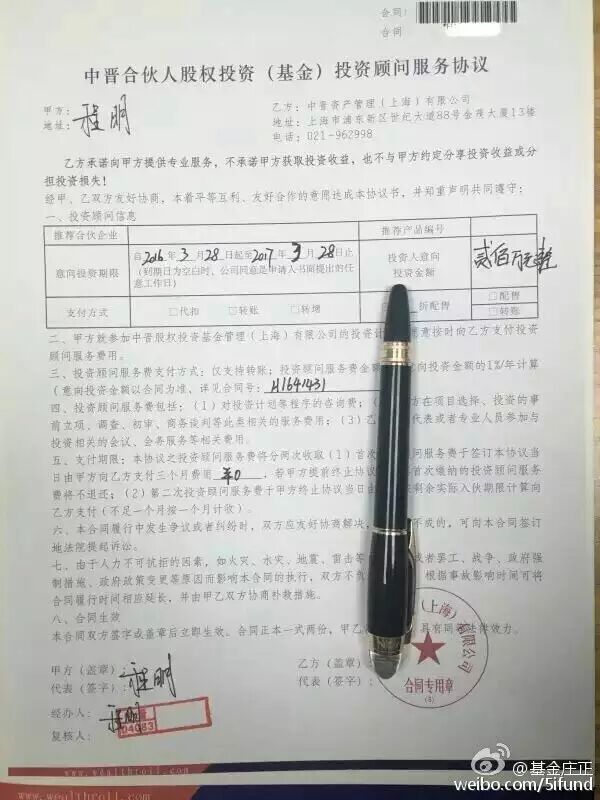 合同:
合同
中晋合伙人股权投资（基金）投资顾问服务协议
甲方: 程明
地址:
乙方: 中晋资产管理（上海）有限公司
地址: 上海市浦东新区世纪大道88号金茂大厦13楼
电话: 021-962998
乙方承诺向甲方提供专业服务，不承诺甲方获取投资收益，也不与甲方约定分享投资收益或分
担投资损失!
经甲、乙双方友好协商，本着平等互利、友好合作的意愿达成本协议书，并知重声明共同遵守:
一、投资顾问信息
推荐合伙企业
推荐产品编号
意向投资期限
自2016年3月28日起至2017年3月28日止
(到期日为空白时，公司同意是申请人书面提出的任
意工作日)
投资人意向
投资金额
贰佰万元整
支付方式
□代扣 □转账 □转增
折配售
□配售
□转账
二、甲方就参加中晋股权投资基金管理（上海）有限公司的投资计 愿意接时向乙方支付投资
顾问服务费用。
三、投资顾问服务费支付方式: 仅支持转账; 投资顾问服务费金额 意向投资金额的1%/年计算
(意向投资金额以合同为准，详见合同号: H1641431
四、投资顾问服务费包括: (1) 对投资计划筹程序的咨询费; 方在项目选择、投资的事
前立项、调查、初审、商务谈判等此类相关的服务费用; (3) 乙 代表或者专业人员参加与
投资相关的会议、会务服务等相关费用。
五、支付期限: 本协议之投资顾问服务费将分两次收取 (1) 首次 顾问服务费于签订本协议当
日由甲方向乙方支付三个月费用 ¥0 ，若甲方提前终止协议 首次缴纳的投资顾问服务
费将不退还; (2) 第二次投资顾问服务费于甲方终止协议当日由 剩余实际入伙期限计算向
乙方支付 (不足一个月按一个月计收)。
六、本合同履行中发生争议或者纠纷时，双方应友好协商解决， 不成的，可向本合同签订
地法院提起诉讼。
七、由于人力不可抗拒的因素，如火灾、水灾、地震、雷击等 或者罢工、战争、政府强
制措施、政府政策变更等原因而影响本合同的执行，双方不负 根据事故影响时间可将
合同履行时间相应延长，并由甲乙双方协商补救措施。
八、合同生效
本合同双方签字或盖章后立即生效。合同正本一式两份，甲乙 具官同等法律效力。
甲方（盖章）
代表（签字）: 程明
乙方（盖章）
代表（签字）:
（上海）有限公司
合同专用章
(4)
经办人: 程明
04083
复核人:
www.wealthroll.com
www.wealthroll.com
@基金庄正
weibo.com/5ifund